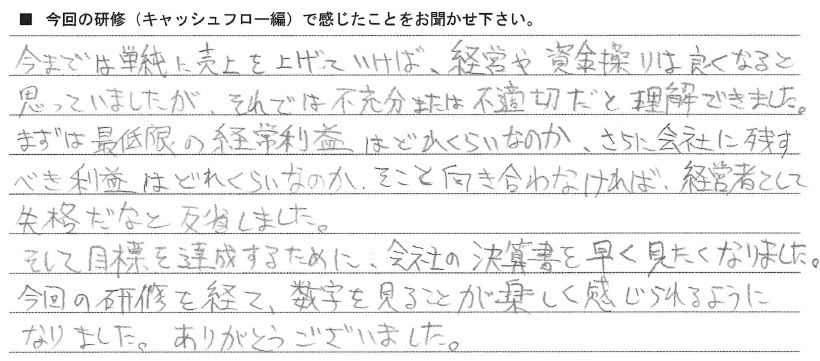 ■ 今回の研修（キャッシュフロー編）で感じたことをお聞かせ下さい。
今までは単純に売上を上げていけば、経営や資金操りは良くなると
思っていましたが、それでは不充分または不適切だと理解できました。
まずは最低限の経常利益はどれくらいなのか、さらに会社に残す
べき利益はどれくらいなのか、そこと向き合わなければ、経営者として
失格だなと反省しました。
そして目標を達成するために、会社の決算書を早く見たくなりました。
今回の研修を経て、数字を見ることが楽しく感じられるように
なりました。ありがとうございました。